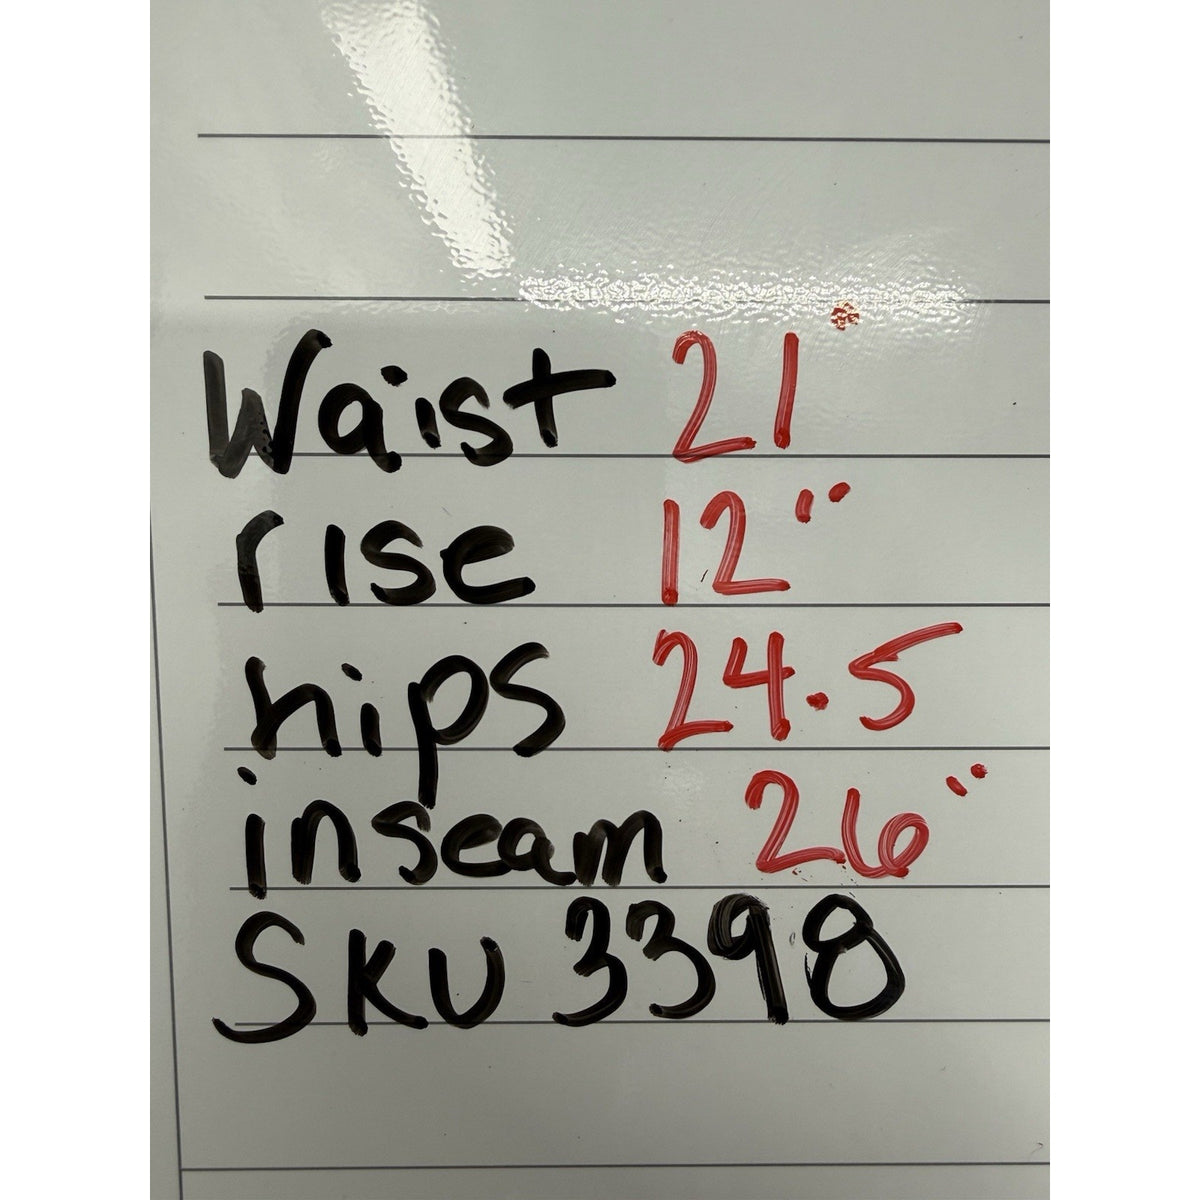 Waist 21"
rise 12"
hips 24.5
inseam 26"
SKU 3398